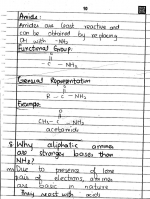 10
Amides:
Amides are least reactive and
can be obtained by replacing
OH with -NH₂
Functional Group:
O
- C - NH₂
General Representation
O
R - C - NH₂
Example:
O
CH₃ - C - NH₂
acetamide
Why aliphatic amines
are stronger bases than
NH₃?
Due to presence of lone
pair of electrons, amines
are basic in nature
They react with acids